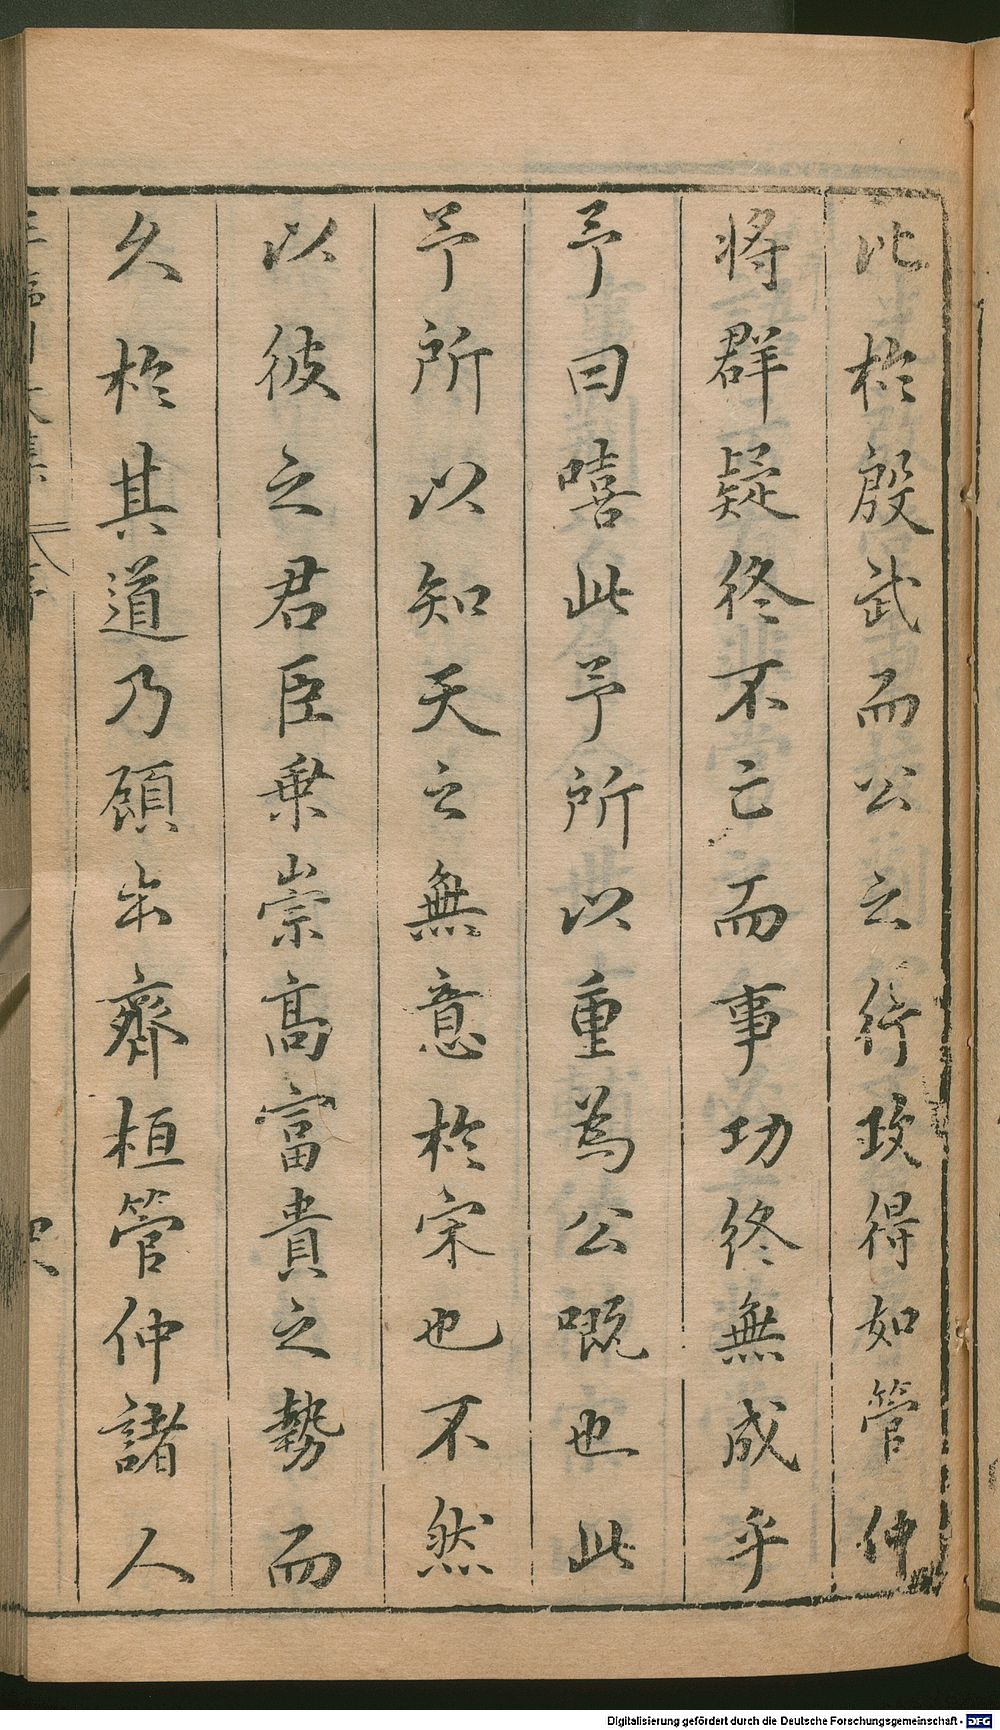 比於殷武而公之行政得如管仲
将群疑終不亡而事功終無成乎
予曰嘻此予所以重為公嘅也此
予所以知天之無意於宋也不然
以彼之君臣乗崇髙富貴之勢而
久於其道乃顧出齊桓管仲諸人
王臨川文集
序
四
Digitalisierung gefördert durch die Deutsche Forschungsgemeinschaft - DFG